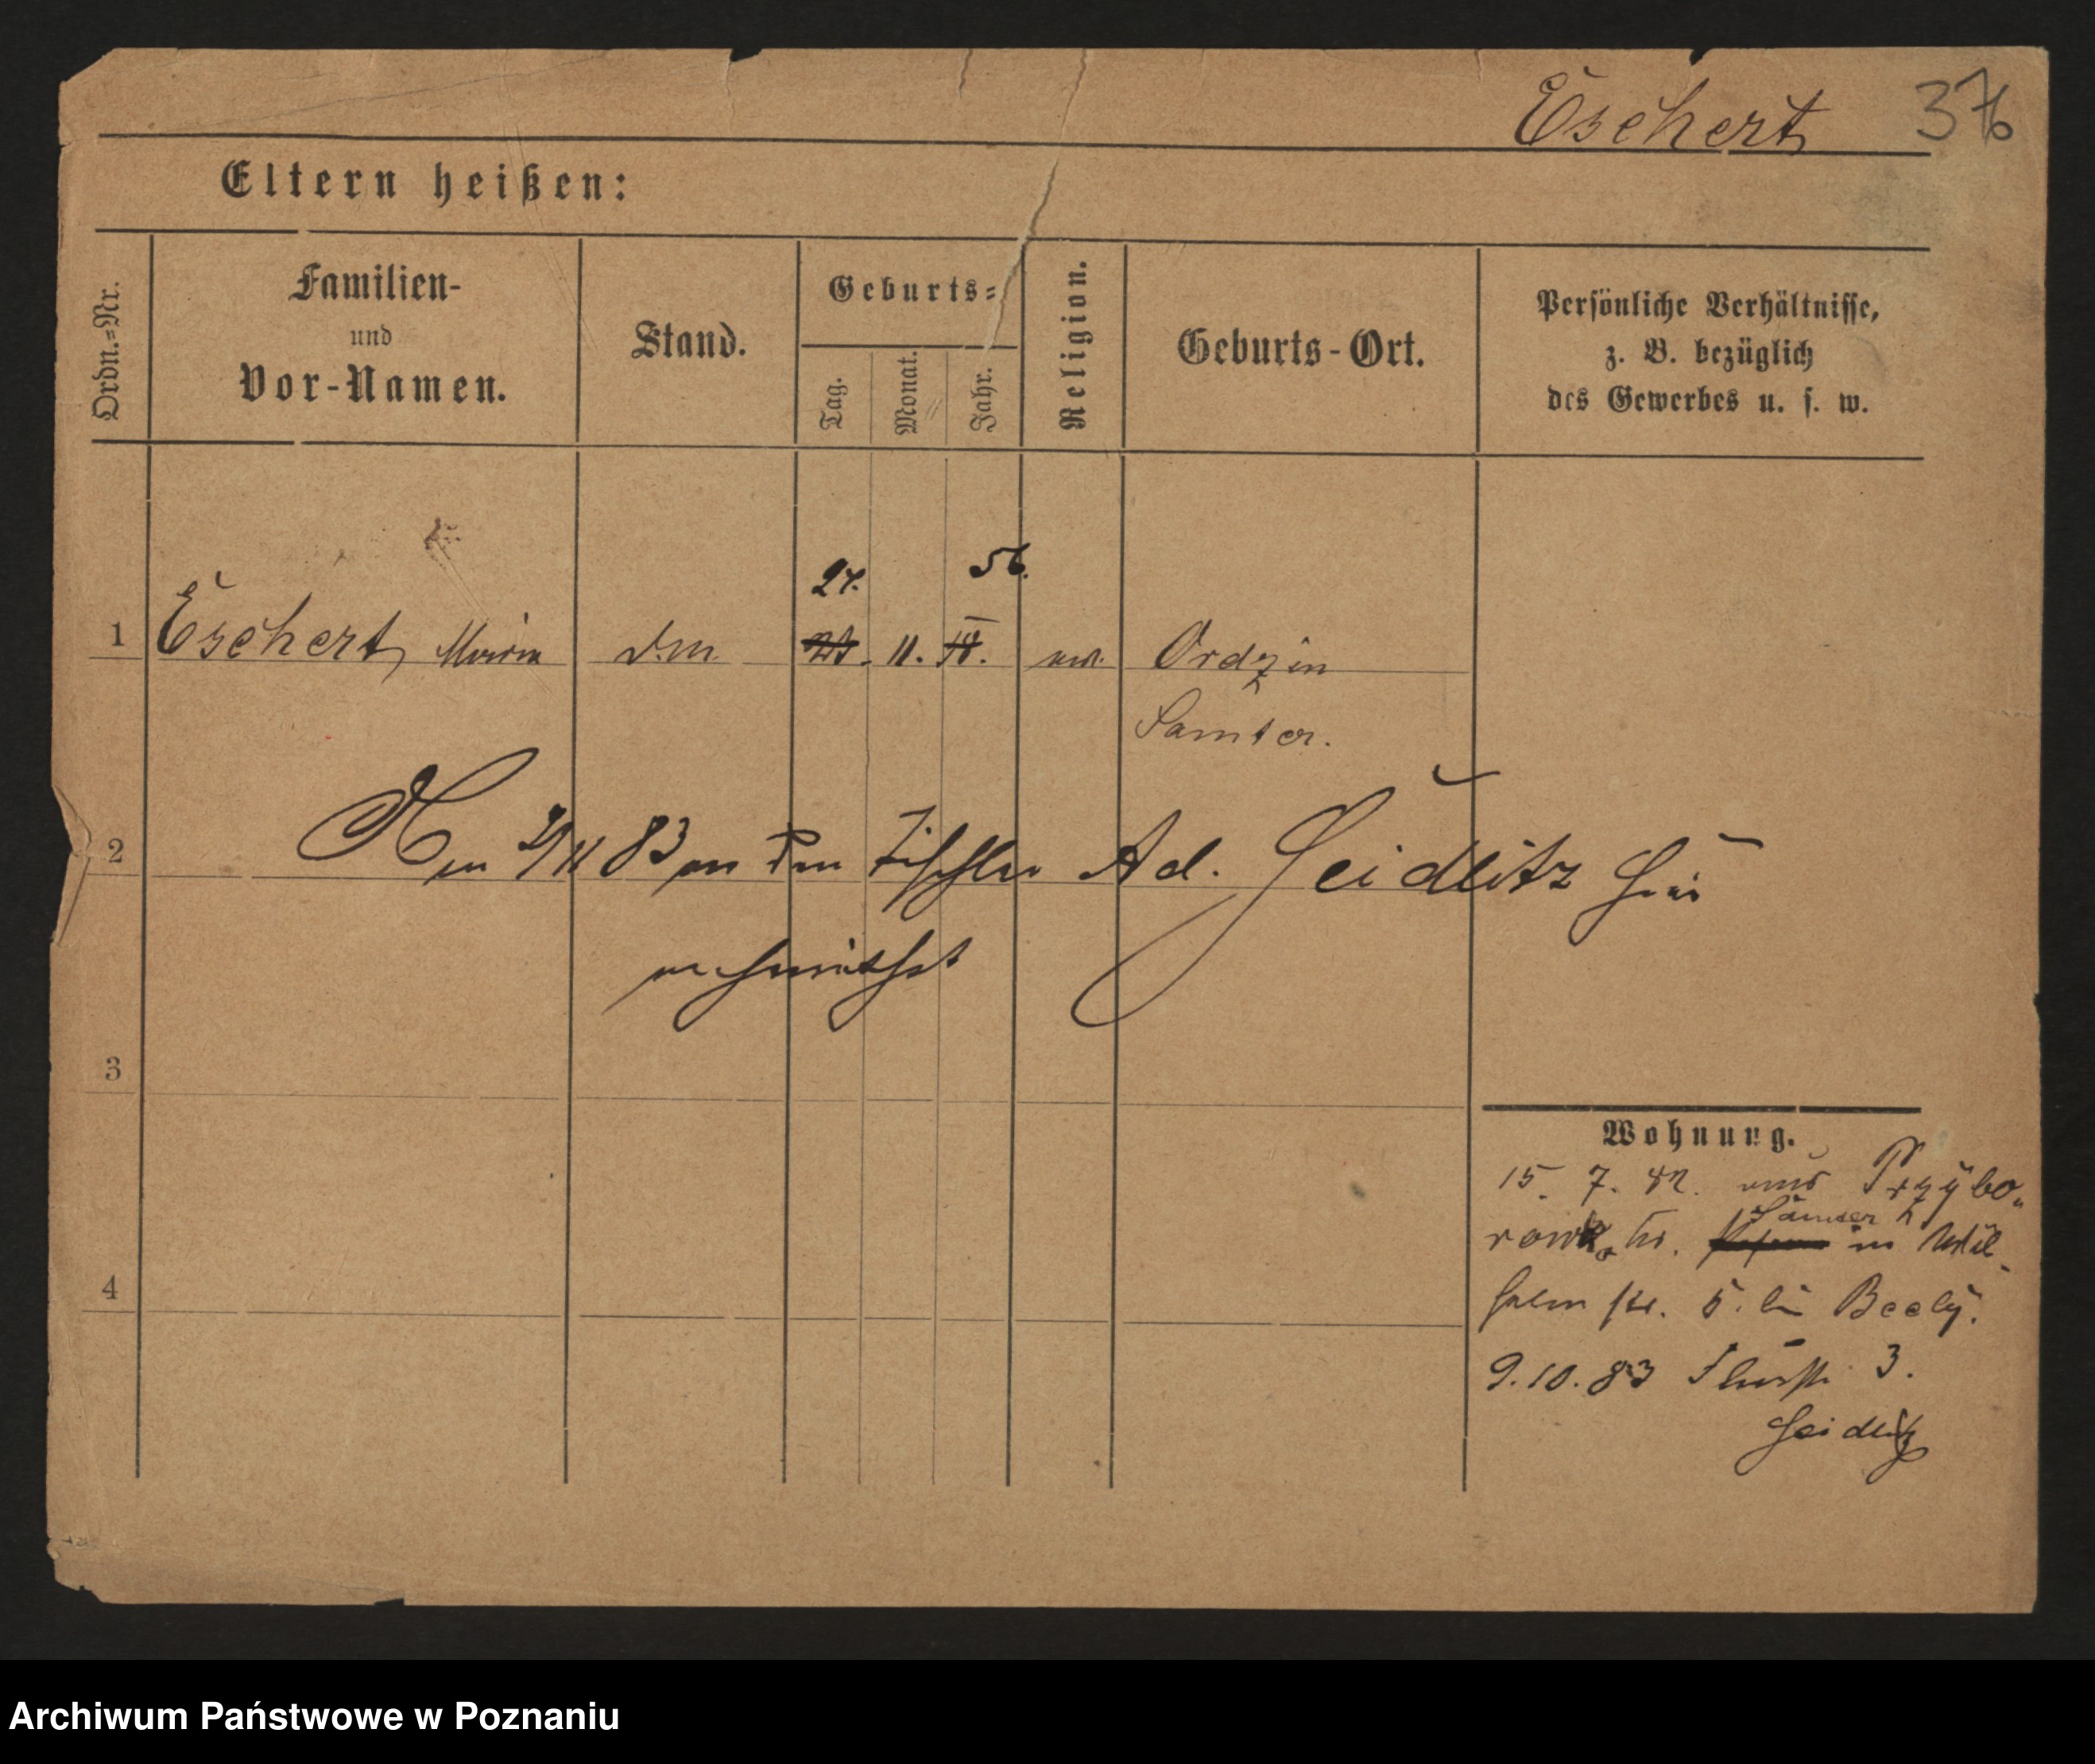 Eschert 376
Eltern heißen:
Ordn.=Nr.
Familien-
und
Vor-Namen.
Stand.
Geburts=
Tag.
Monat.
Jahr.
Religion.
Geburts-Ort.
Persönliche Verhältnisse,
z. B. bezüglich
des Gewerbes u. s. w.
27. 56.
1 Eschert, Maria d.m. 11. ev. Ordzin
Samter.
2 83 an den Tischler Ad. Seidlitz hier
verheirathet
3
Wohnung.
15. 7. 82. aus Przybo-
Samter
rowk. Kr. in Wil-
4
helm str. 5. bei Beely.
9.10.83 3.
Seidlitz
Archiwum Państwowe w Poznaniu